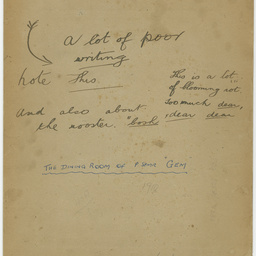 a lot of poor
writing
note This
This is a lot
of blooming rot
too much dear,
dear dear
And also about
the rooster. "book
"THE DINING ROOM OF P. "GEM